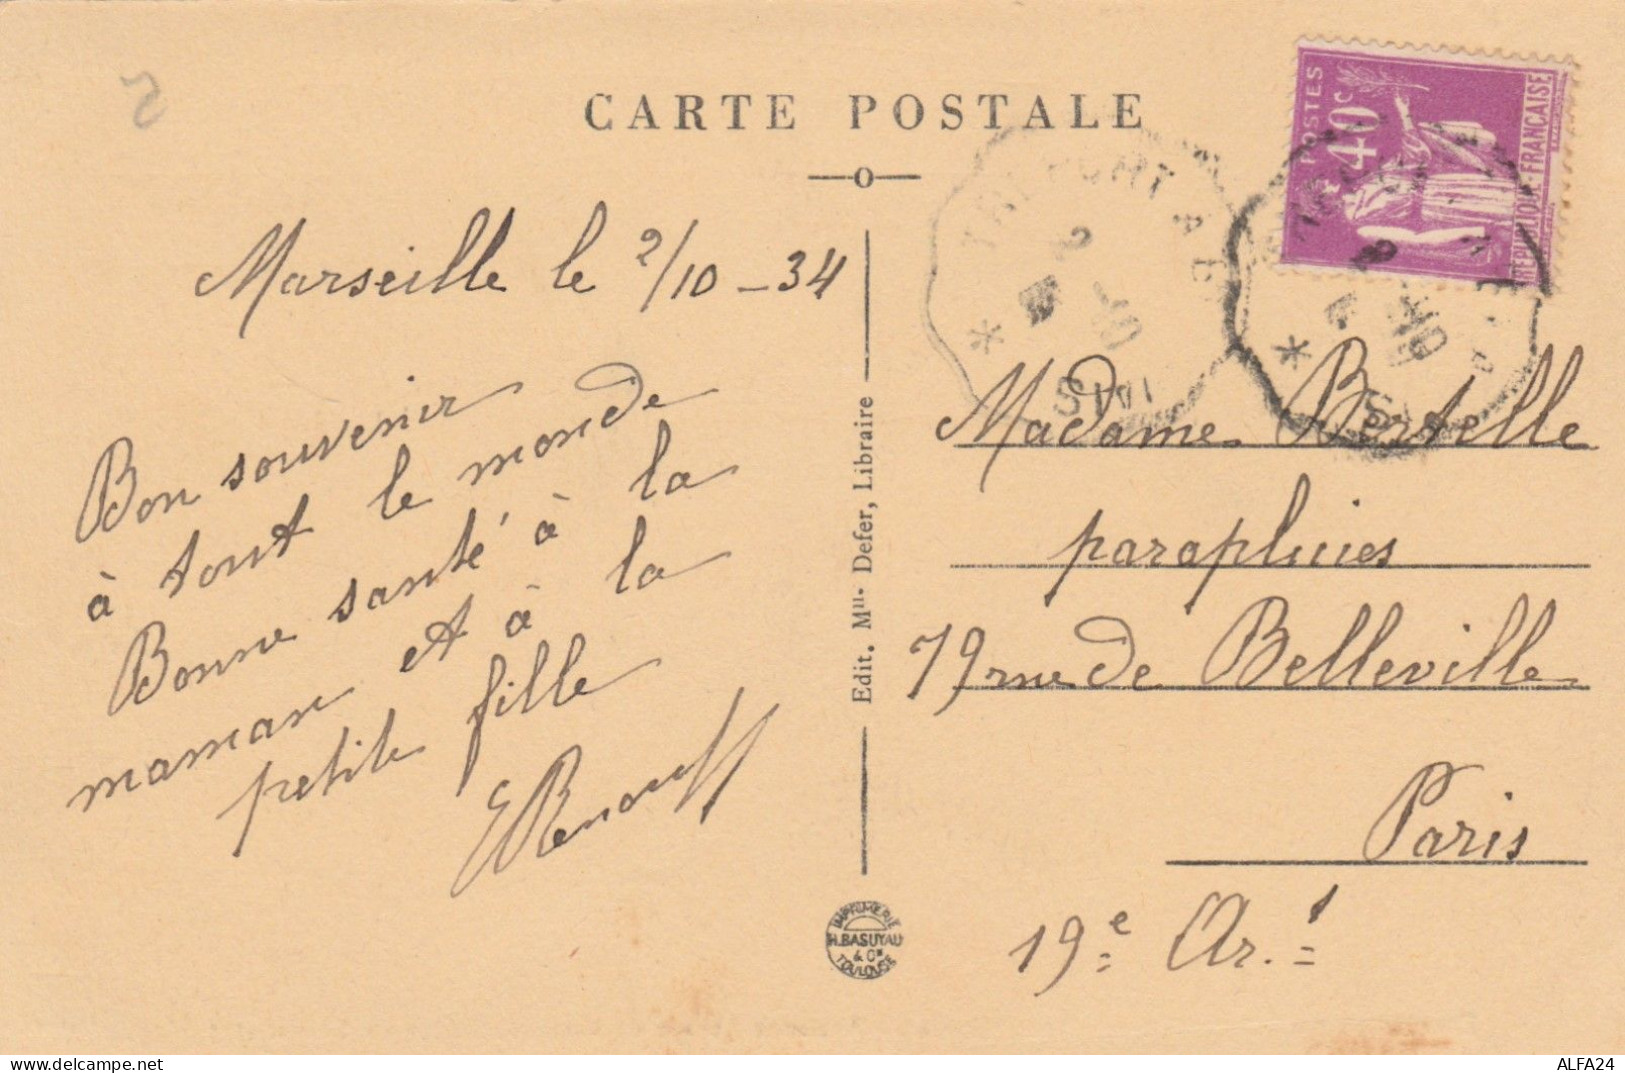 CARTE POSTALE
POSTES
40c
REPUBLIQUE FRANÇAISE
Marseille le 2/10 - 34
Bon souvenir
à tout le monde
Bonne santé à la
maman et à la
petite fille
ERenouff
Edit. Mll. Defer, Libraire
IMPRIMERIE
H. BASUYAU
& Cie
TOULOUSE
2 -10
Madame Bertelle
parapluies
79 rue de Belleville
Paris
19e Ar.t
ALFA24